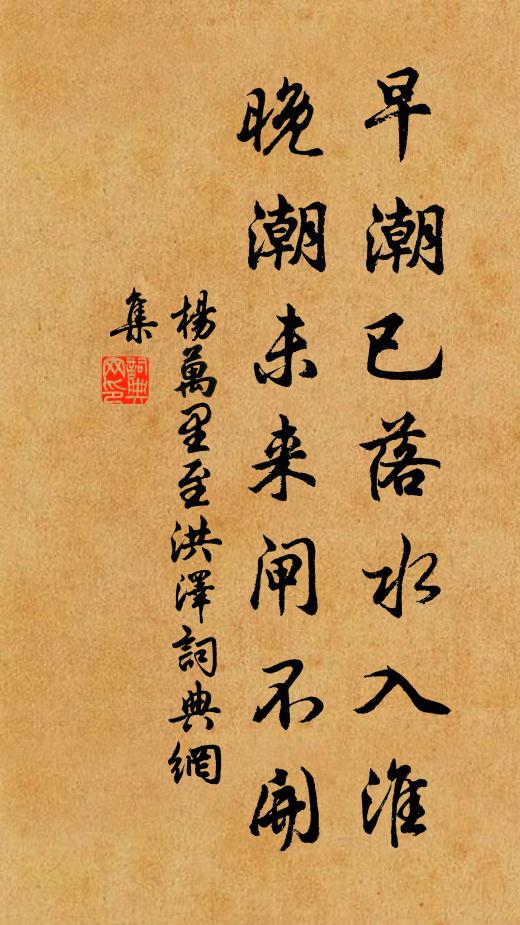 早潮已落水入淮
晚潮未来闸不开
楊萬里至洪澤詞典網
集
詞典
网印